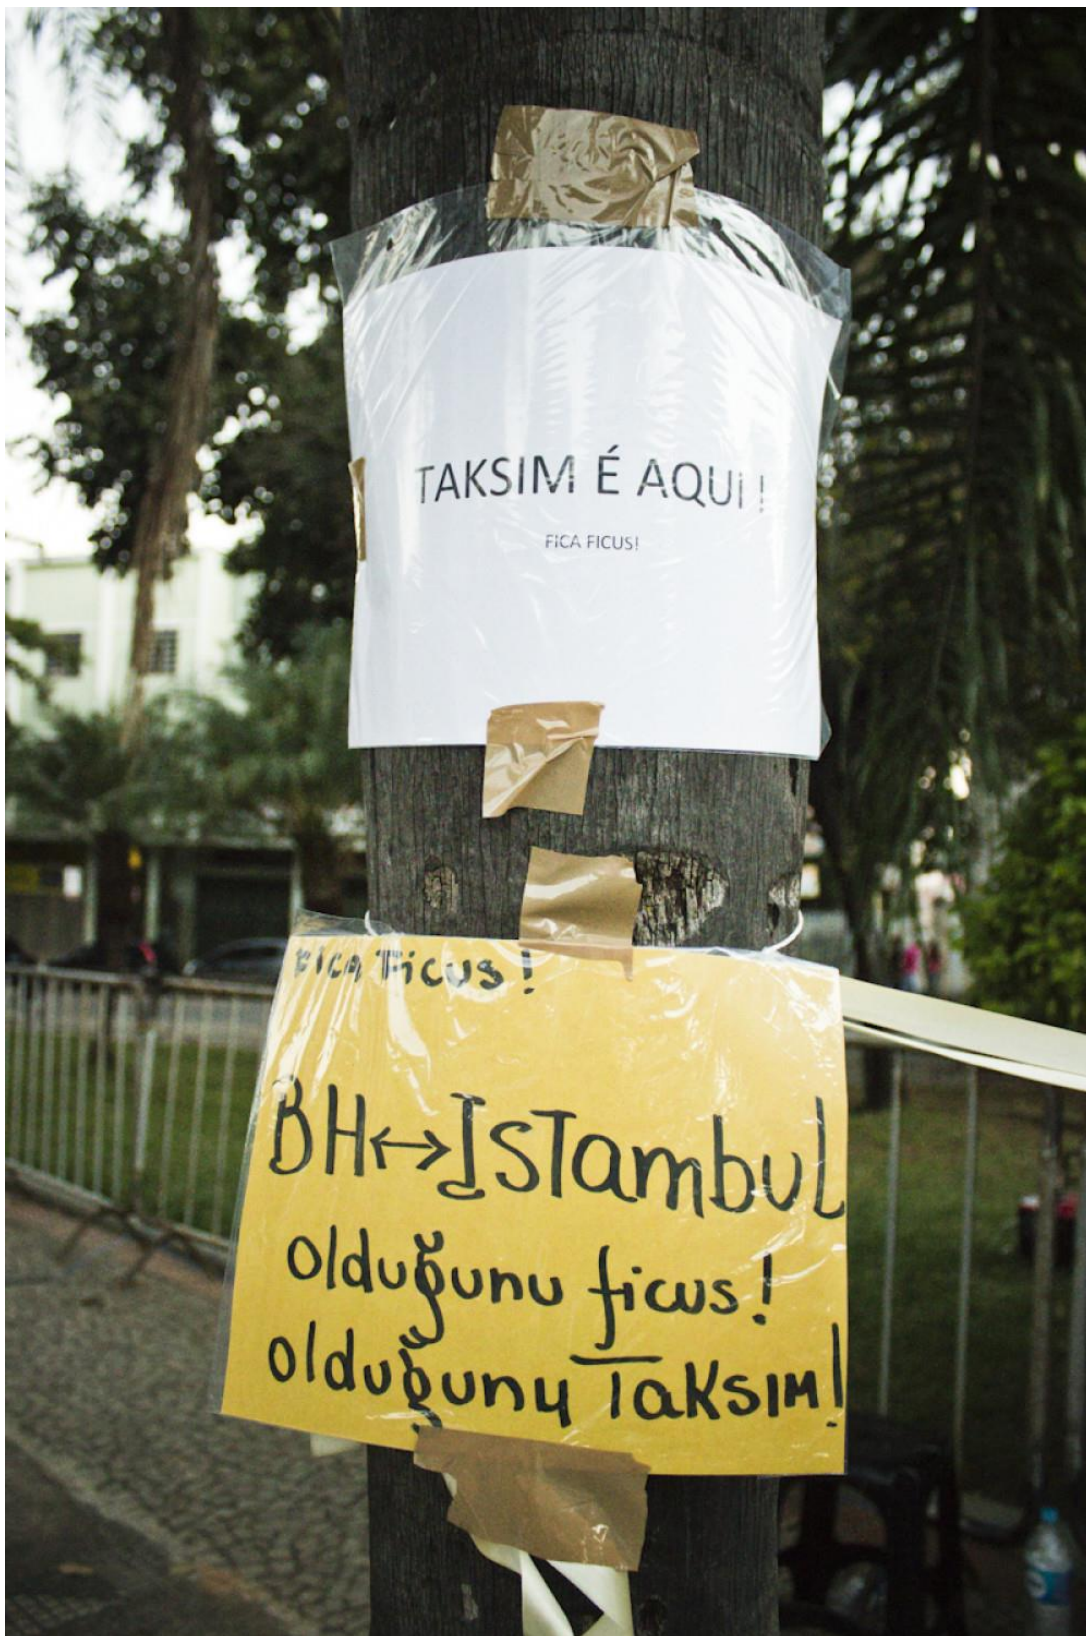 TAKSIM É AQUI !
FICA FICUS!
FICA FICUS!
BH↔ISTambuL
olduğunu ficus!
olduğunu TaKSIM!